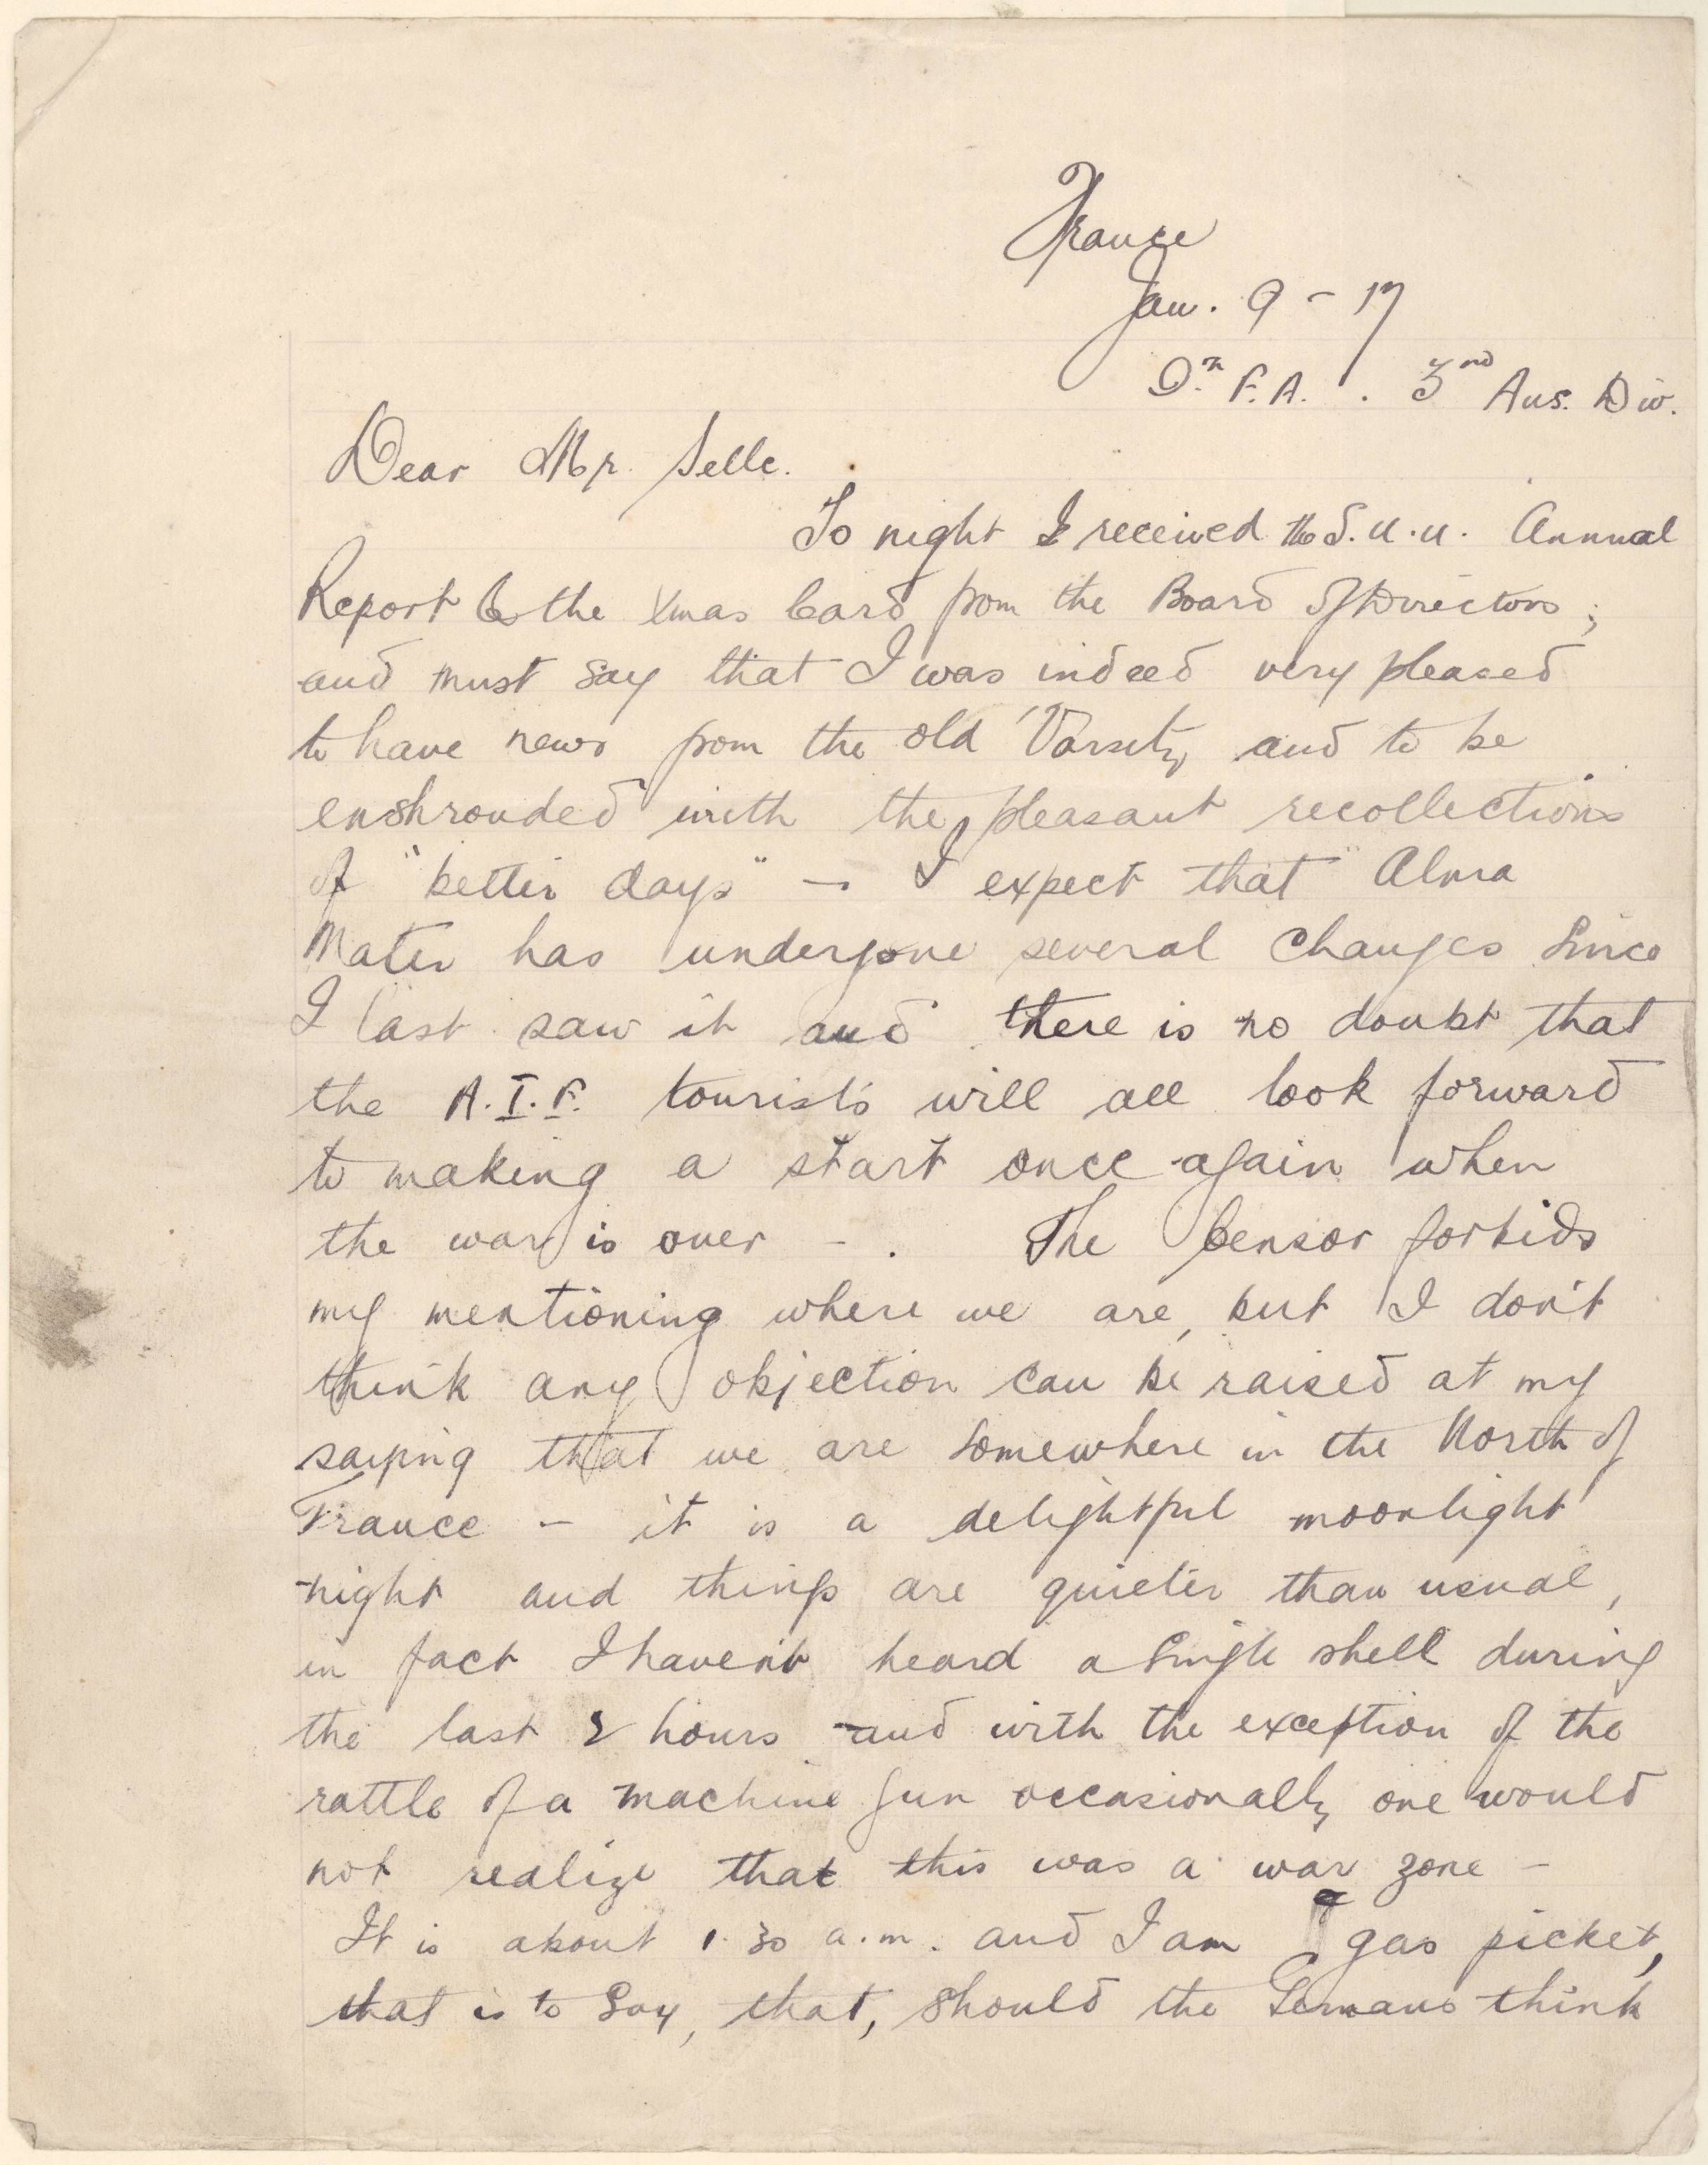 France
Jan. 9 - 17
9th F.A. . 3rd Aus. Div.
Dear Mr. Selle.
To night I received the S.U.U. Annual
Report & the Xmas Card from the Board of Directors;
and must say that I was indeed very pleased
to have news from the old 'Varsity and to be
enshrouded with the pleasant recollections
of "better days" - I expect that "Alma
Mater has undergone several changes since
I last saw it and there is no doubt that
the A.I.F. tourists will all look forward
to making a start once again when
the war is over - . The Censor forbids
my mentioning where we are, but I don't
think any objection can be raised at my
saying that we are somewhere in the North of
France - it is a delightful moonlight
night and things are quieter than usual,
in fact I haven't heard a single shell during
the last 2 hours and with the exception of the
rattle of a machine gun occasionally one would
not realize that this was a war zone -
It is about 1.30 a.m. and I am gas picket,
that is to say, that, should the Germans think